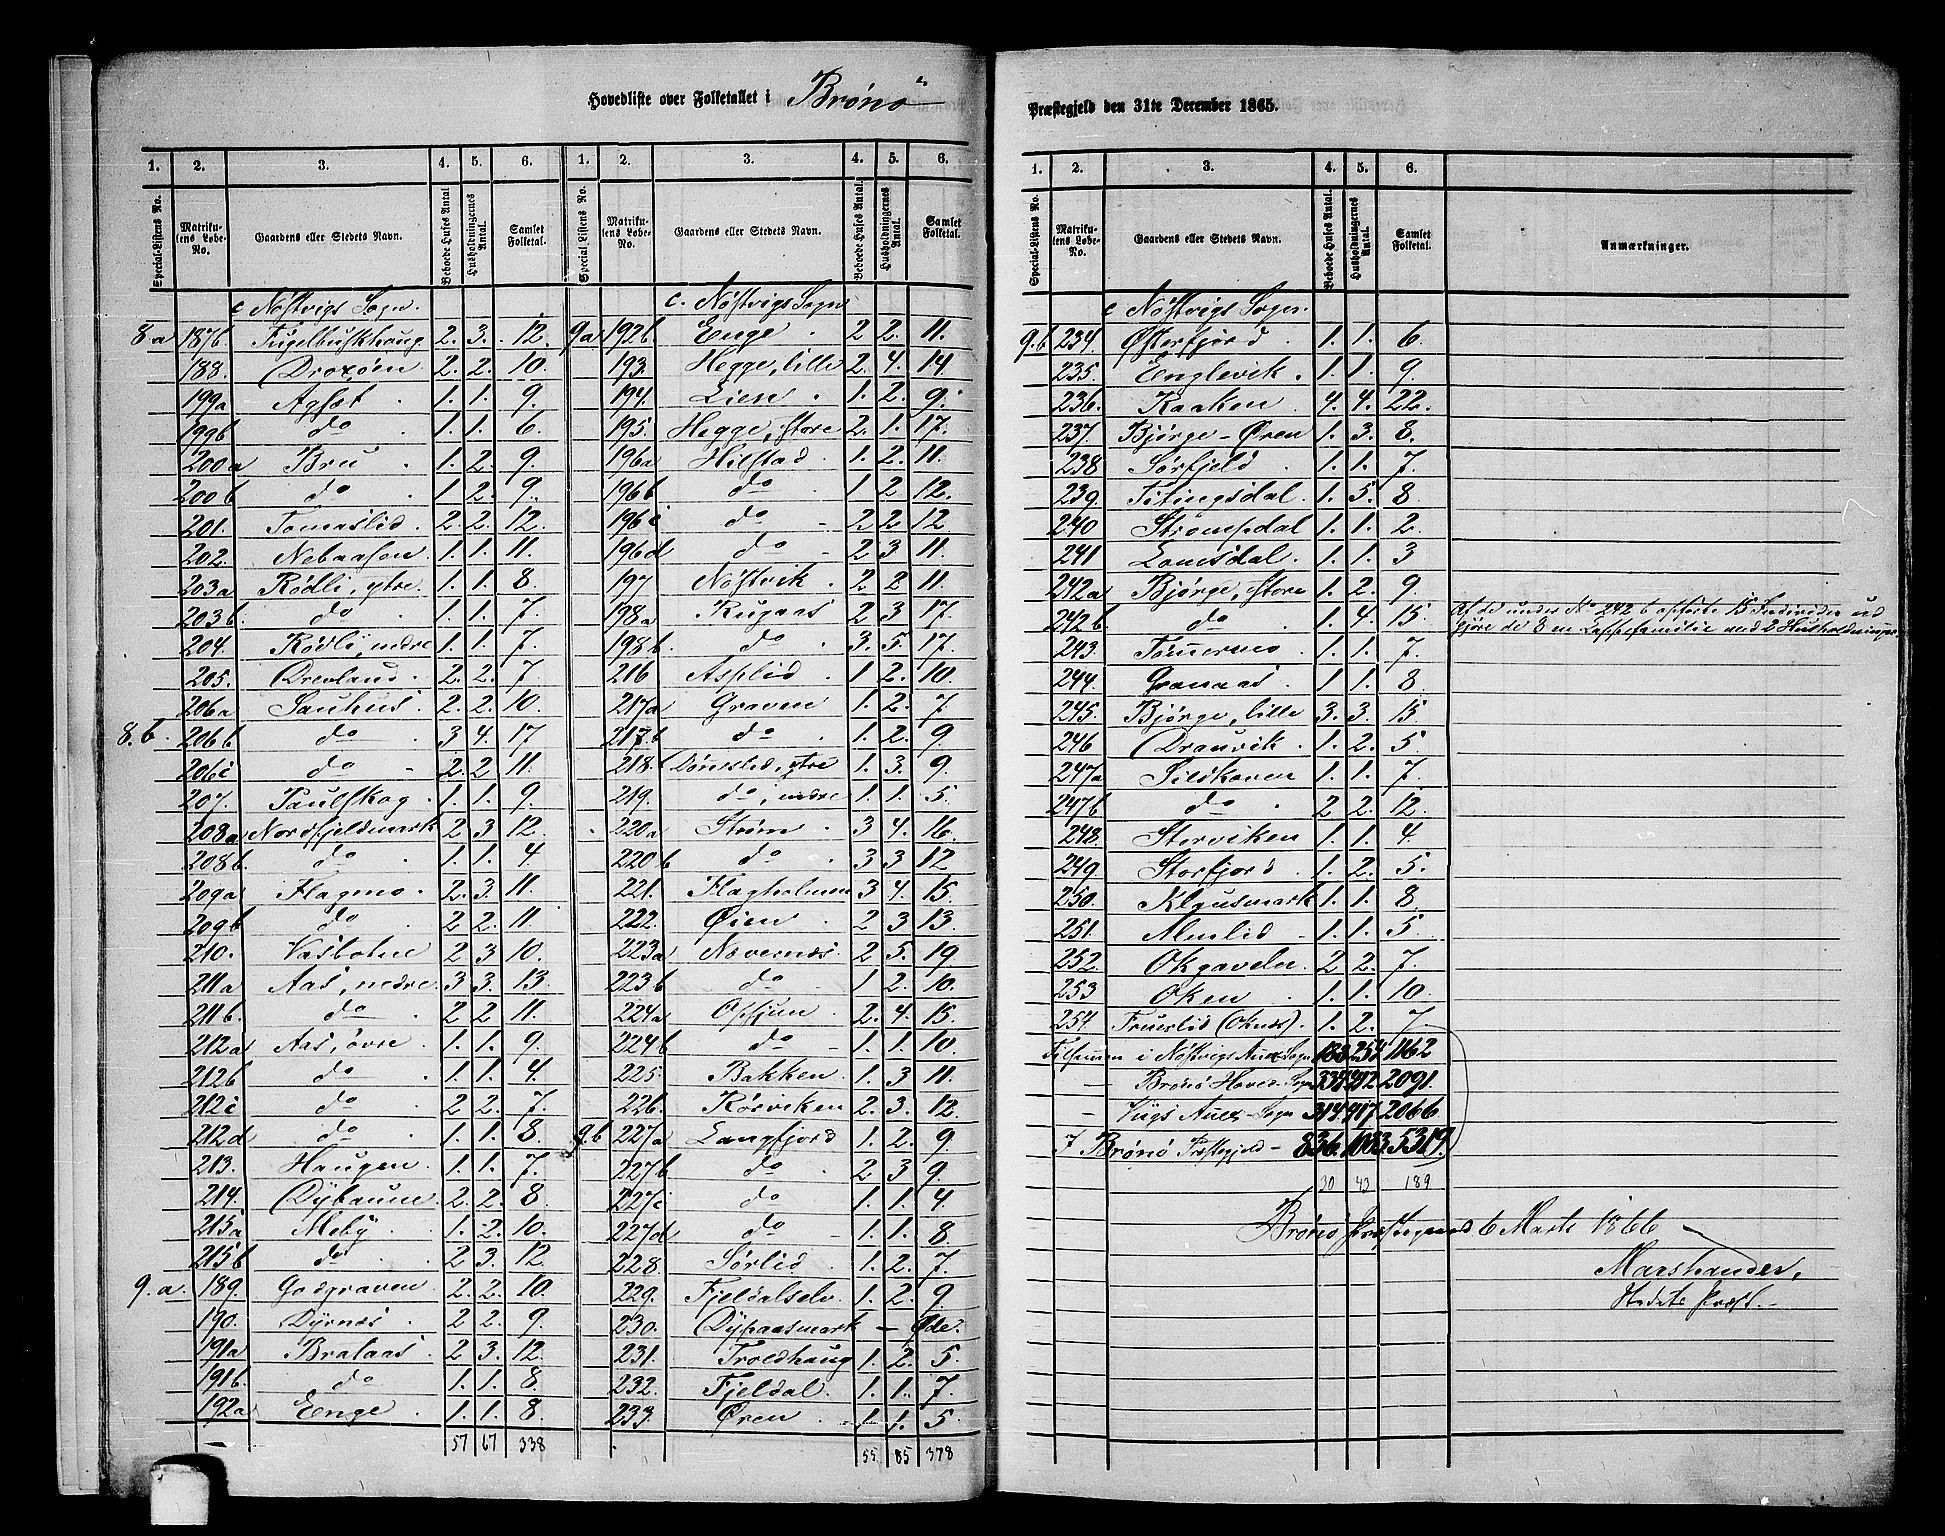 Hovedliste over Folketallet i Brønø
1. 2. 3. 4. 5. 6. 1. 2. 3. 4. 5. 6.
Special-Listens No. Matrikulens Løbe-No. Gaardens eller Stedets Navn. Beboede Huses Antal Husholdningernes Antal. Samlet Folketal. Special-Listens No. Matrikulens Løbe-No. Gaardens eller Stedets Navn. Beboede Huses Antal. Husholdningernes Antal. Samlet Folketal.
c Nøstvigs Sogn.
8a 187b. Fugelbuskhaug 2. 3. 12.
188. Droxøen 2. 2. 10.
199a Agsæt 1. 1. 9.
199b do 1. 1. 6.
200a Bru 1. 2. 9.
200b do 1. 2. 9.
201. Tomaslid 2. 2. 12.
202. Nebaasen 1. 1. 11.
203a Rødli, ytre 1. 1. 8.
203b do 1. 1. 7.
204. Rødli, nedre 1. 1. 7.
205. Oreland 2. 2. 7
206a Sauhus 2. 2. 10.
8.b. 206b do 3 4. 17
206c do 2. 2 11.
207. Paulskog 1. 1. 9.
208a Nordfjeldmark 2 3 12.
208b. do 1. 1. 4.
209a Flagmo 2. 3. 11.
209b do 2 2. 11
210. Vasbotne 2 3 10.
211a Aas, nedre 3 3. 13.
211b. do 2 2 11.
212a Aas, øvre 1. 1. 9.
212b do 1. 1. 4.
212c do 2 2. 7.
212d do 1. 1. 8.
213. Haugen 1. 1. 7.
214. Dybaune 2. 2. 8.
215a Moby 1. 2. 10.
215b do 2 3. 12.
9.a. 189. Godgraven 2. 2. 10.
190. Dyrnes 2 2. 9.
191a Brataas 2 3. 12.
191b. do 1. 1. 8.
192a Enge 1. 1. 8.
57 67 338
c. Nøstvigs Sogn
9a 192b Enge 2 2. 11.
193. Hegge, lille 2. 4. 14.
194. Lien 1. 2. 9.
195. Hegge, store 2. 1. 17.
196a Hilstad 1. 2. 11.
196b do 1. 2 12.
196c do 2 2 12
196d do 2 3 11.
197 Nøstvik 2 2 11.
198a Rugaas 2 3 17.
198b do 3. 5. 17.
216 Asplid 1. 2. 10.
217a Graven 1. 2. 7
217b do 1. 2. 9
218. Dønneslid, ytre 1. 3. 9
219. do, nedre 1. 1. 5.
220a Strøm 3 4. 16.
220b do 3 3 12
221. Flagholmen 3 4. 15.
222. Øien 2 3 13.
223a Nevernæs 2 5. 19
223b do 1 2. 10.
224a Opsjun 2. 4. 15.
224b do 1. 1. 10.
225. Bakken 1. 3 11.
226. Rørviken 2. 3. 12.
9b 227a Langfjord 1. 2. 9
227b do 2 3 9.
227c do 1. 1. 4
227d do 1. 1. 8
228. Sørlid 1. 2. 7
229. Fjeldalselv 1. 2. 9
230. Dyhaasmark — Øde.
231. Troldhaug 1. 2. 5.
232. Fjeldal 1. 1. 7
233. Øren 1. 1. 5
55 85 378
Præstegjeld den 31te December 1865.
1. 2. 3. 4. 5. 6.
Special-Listens No. Matrikulens Løbe-No. Gaardens eller Stedets Navn. Beboede Huses Antal. Husholdningernes Antal. Samlet Folketal. Anmærkninger.
c Nøstvigs Sogn.
9.b 234. Østerfjord 1. 1. 6
235. Englevik 1. 1. 9.
236. Kaaken 4. 4. 22.
237. Bjørge-Øren 1. 3. 8.
238 Sørfjeld 1. 1. 7.
239. Titingsdal 1. 5. 8
240 Strømpdal 1. 1. 2.
241 Lomsdal 1. 1. 3
242a Bjørge, store 1. 2. 9.
242b. do 1. 4. 15. Af de under No 242 b opførte 15 Individer ud
gjøre de 8 en Lappefamilie med 2 Husholdninger
243. Tømmermo 1. 1. 7.
244. Granaas 1. 1. 8.
245. Bjørge, lille 3. 3. 15.
246 Drauvik 1. 2. 5.
247a Sildhaven 1. 1. 7.
247b do 2 2. 12.
248. Storviken 1. 1. 4.
249. Storfjord 1. 2. 5.
250. Klausmark 1. 1. 8
251. Almlid 1. 1. 5.
252. Okgavelen 2 2. 7.
253 Oken 1. 1. 10.
254 Fruerlid (Oknæs) 1. 2. 7
Tilsammen i Nøstvigs Anex Sogn 188 254 1162
— Brønø Hoved-Sogn 334 412 2091.
— Vigs Anex-Sogn 314 417 2066
I Brønø Præstegjeld – 836. 1083 5319.
30 43 189
Brønø Præstegaard 6 Marts 1866
Marshander,
Sognepræst.